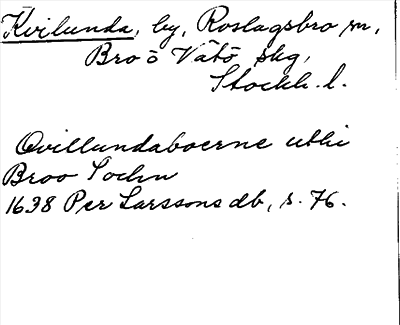 Kvilunda, by, Roslagsbro sn,
Bro o Vätö skg,
Stockh. l.
Qvillundaboerne uthi
Broo Sochn
1638 Per Larssons db, s. 76.